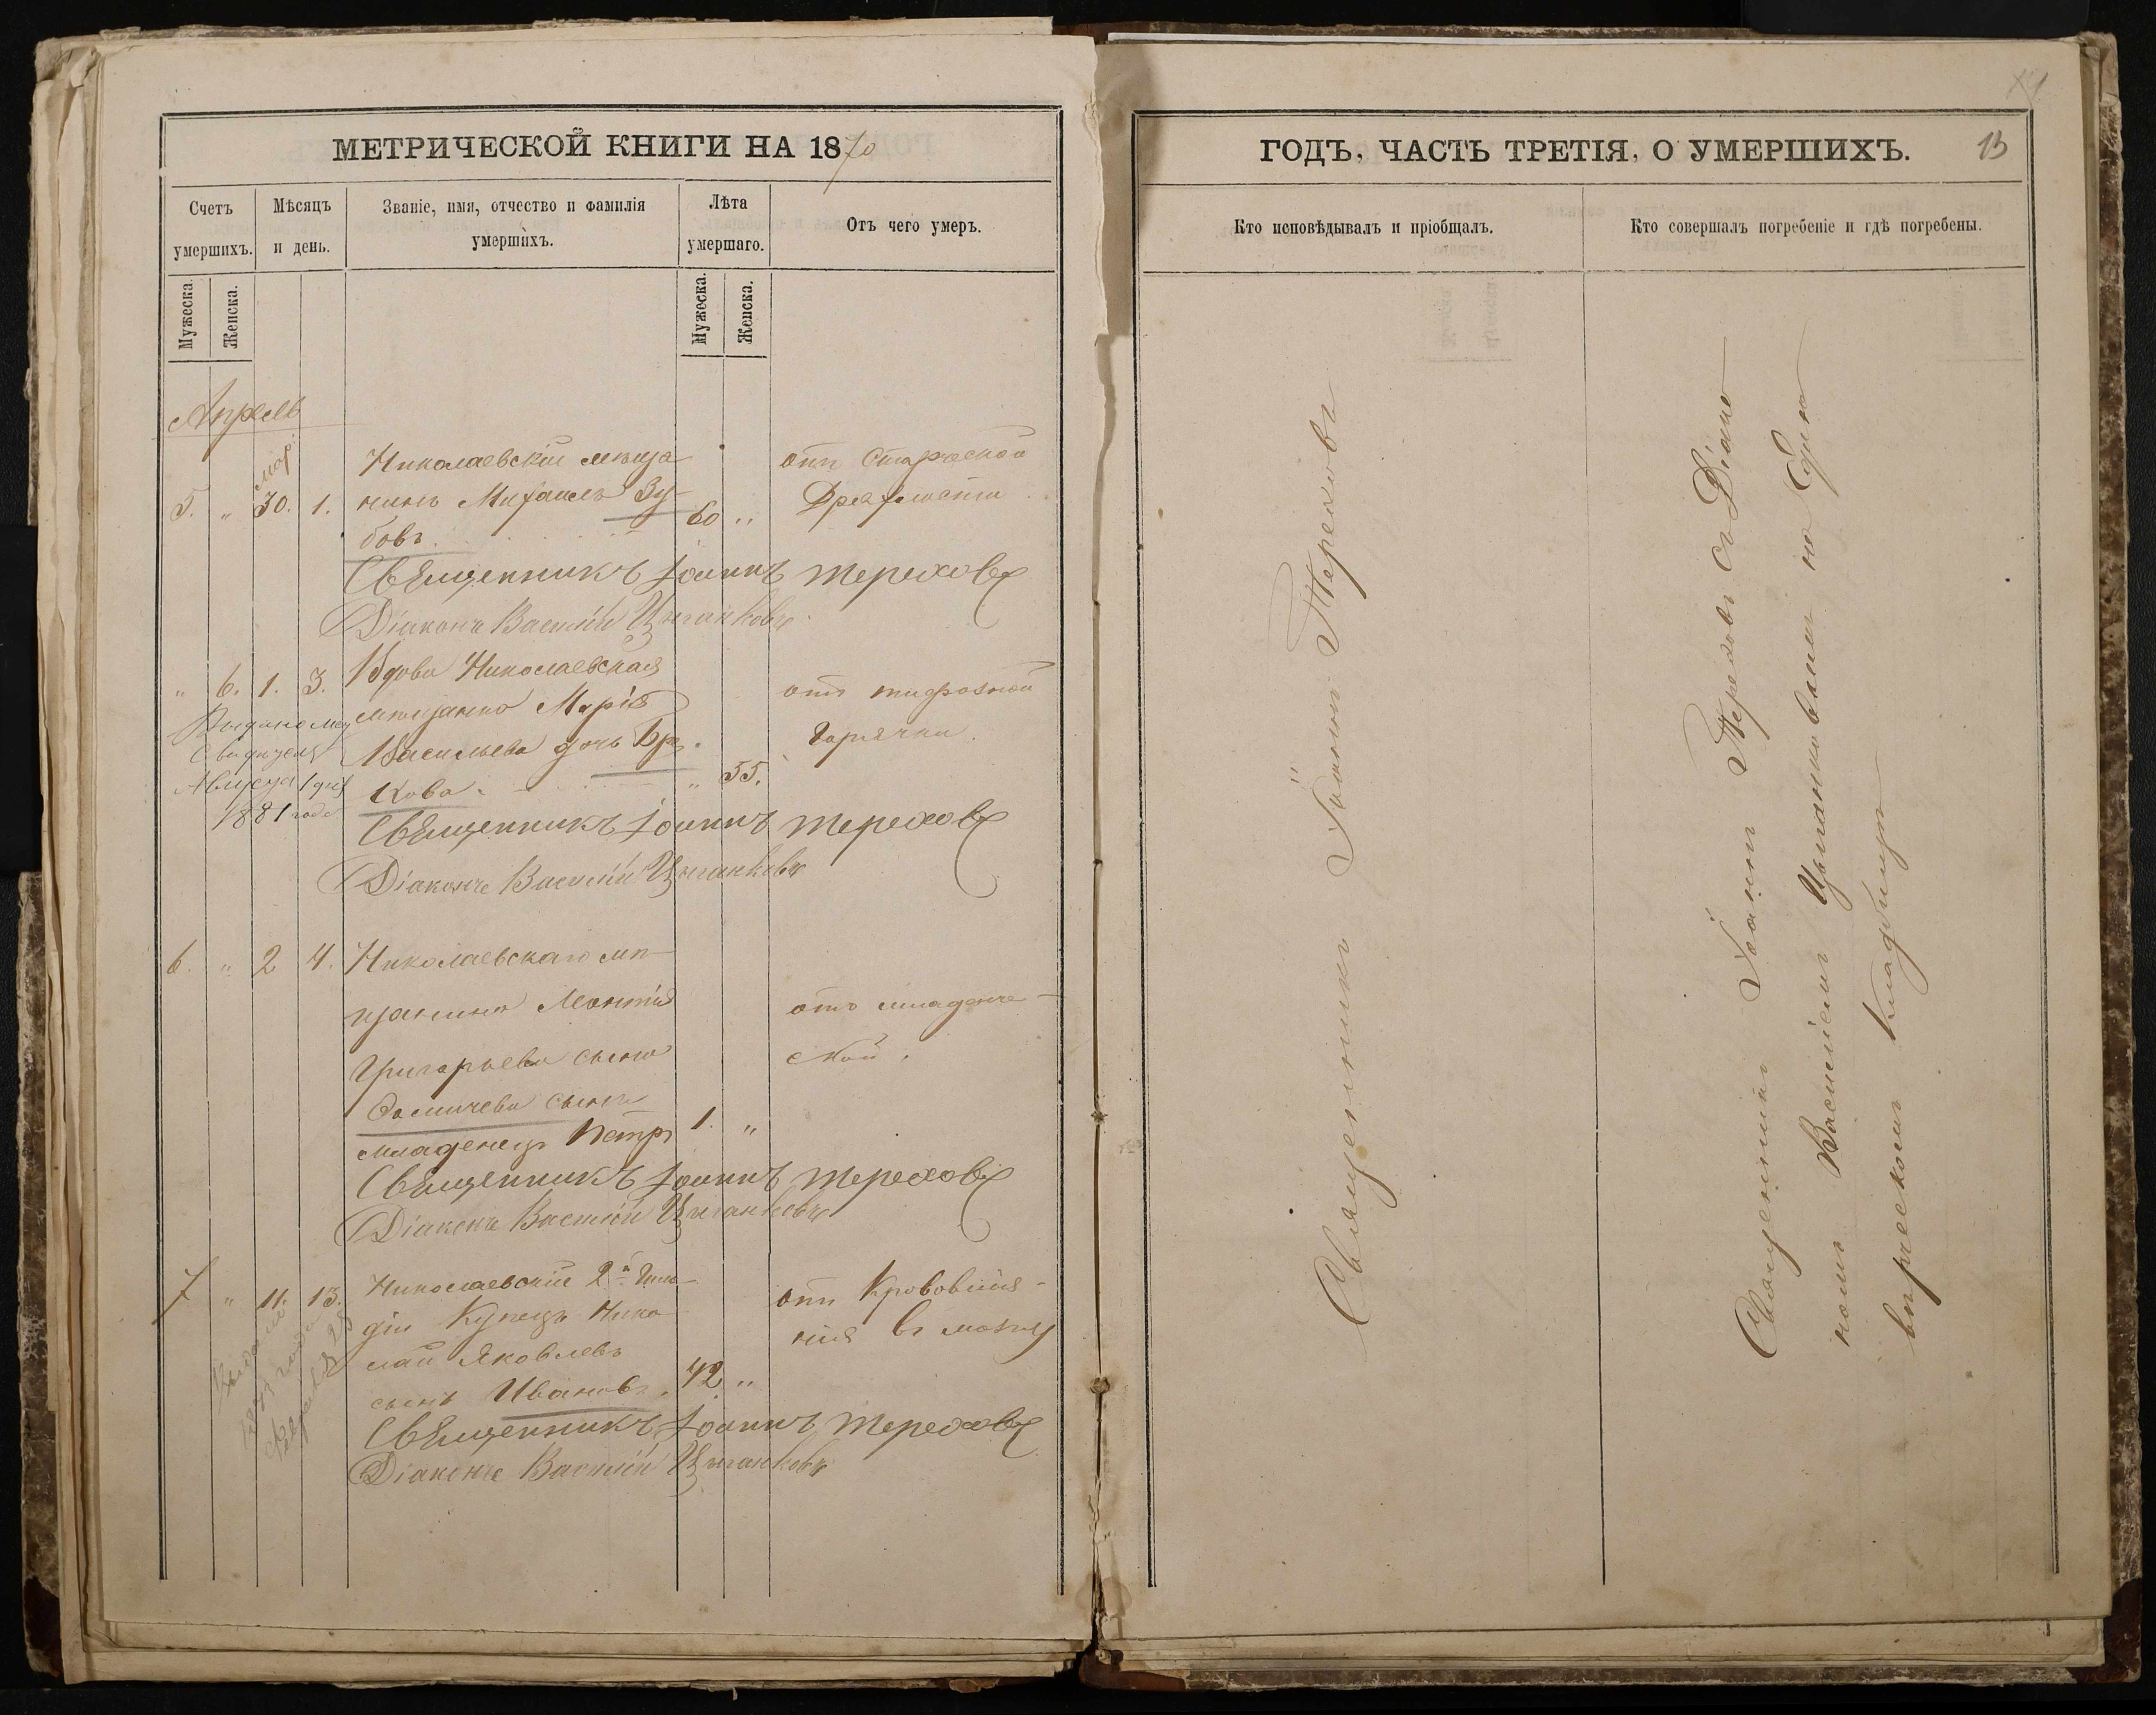 МЕТРИЧЕСКОЙ КНИГИ НА 1870
Счетъ умершихъ.
Мѣсяцъ и день.
Званіе, имя, отчество и фамилія умершихъ.
Лѣта умершаго.
Отъ чего умеръ.
Мужеска.
Женска.
Мужеска.
Женска.
Апрель
Мар.
5. „ 30. 1.
Николаевскій меща
нинъ Михаилъ Зу-
бовъ.
60 „
отъ Старческой
Дряхлости
Священникъ Іоаннъ Тереховъ
Діаконъ Василій Цыганковъ
„ 6. 1. 3.
Вдова Николаевская
мещанка Марія
Васильева дочь
кова.
„ 55.
отъ тифозной
Горячки.
Выдано
Августа 1 дня
1881 года
Священникъ Іоаннъ Тереховъ
Діаконъ Василій Цыганковъ
6. „ 2 4.
Николаевскаго мѣ
щанина Леонтія
Григорьева сына
сынъ
младенецъ Петръ
1. „
отъ младенче-
ской.
Священникъ Іоаннъ Тереховъ
Діаконъ Василій Цыганковъ
7 „ 11. 13.
Николаевскій 2й Гиль-
діи Купецъ Нико
лай Яковлевъ
сынъ Ивановъ.
42 „
отъ Крововлія-
нія въ мозгу
Выдано
Священникъ Іоаннъ Тереховъ
Діаконъ Василій Цыганковъ
ГОДЪ, ЧАСТЬ ТРЕТІЯ, О УМЕРШИХЪ.
13
Кто исповѣдывалъ и пріобщалъ.
Кто совершалъ погребеніе и гдѣ погребены.
Священникъ Іоаннъ Тереховъ
Священникъ Іоаннъ Тереховъ съ Діако
номъ Василіемъ Цыганковымъ на
кладбищѣ